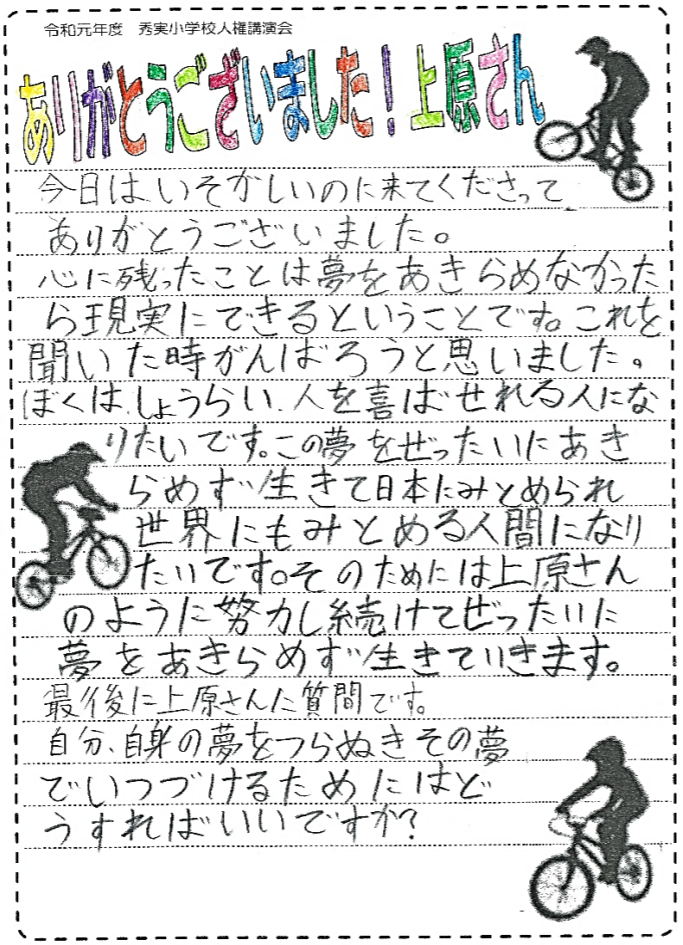 令和元年度　秀実小学校人権講演会
ありがとうございました！上原さん
今日はいそがしいのに来てくださって
ありがとうございました。
心に残ったことは夢をあきらめなかった
ら現実にできるということです。これを
聞いた時がんばろうと思いました。
ぼくは、しょうらい、人を喜ばせれる人にな
りたいです。この夢をぜったいにあき
らめず生きて日本にみとめられ
世界にもみとめる人間になり
たいです。そのためには上原さん
のように努力し続けてぜったいに
夢をあきらめず生きていきます。
最後に上原さんに質問です。
自分、自身の夢をつらぬきその夢
でいつづけるためにはど
うすればいいですか？